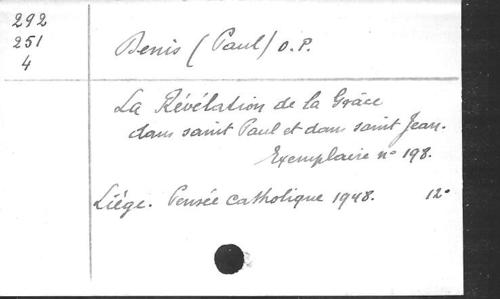 292
251
4
Denis (Paul) O.P.
La Révélation de la Grâce
dans saint Paul et dans saint Jean.
Exemplaire n° 198.
Liége. Pensée catholique 1948. 12°